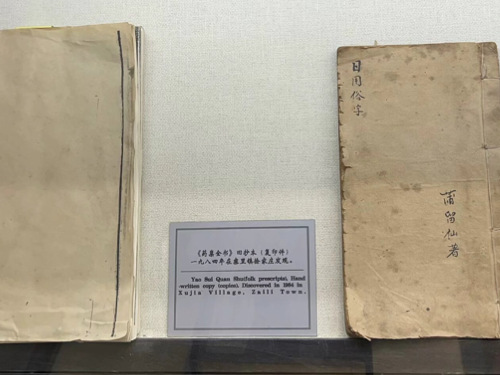 《药祟全书》旧抄本(复印件)
一九八四年在寨里镇徐家庄发现。
Yao Sui Quan Shu(folk prescripist, Hand
written copy (copies). Discovered in 1984 in
Xujia Village, Zaili Town.
日用俗字
蒲留仙著